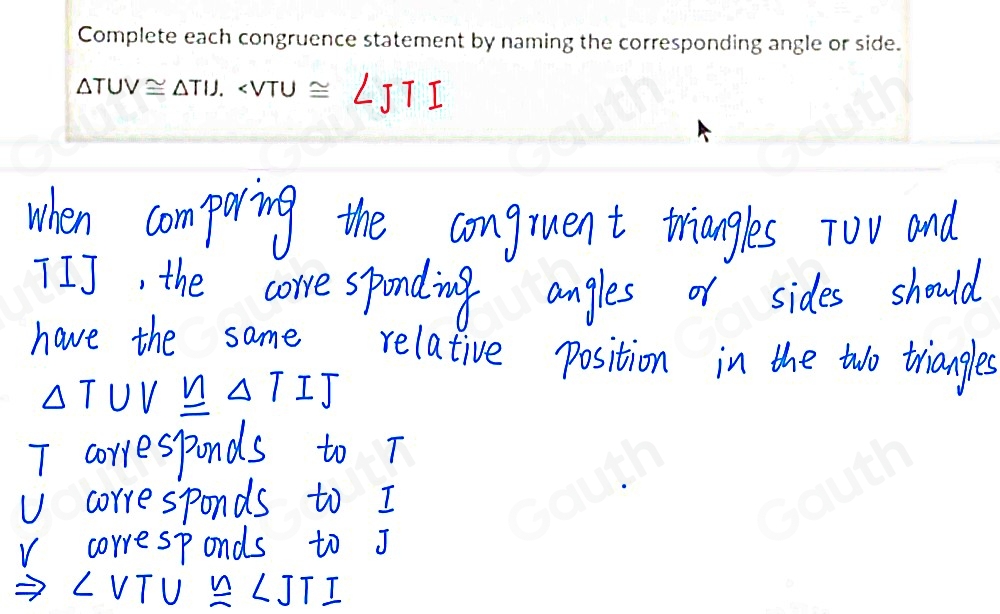 Complete each congruence statement by naming the corresponding angle or side.
ΔTUV ≅ ΔTIJ. <VTU ≅ ∠JTI
when comparing the congruent triangles TUV and
TIJ , the corresponding angles or sides should
have the same relative position in the two triangles
Δ TUV ≌ Δ TIJ
T corresponds to T
U corresponds to I
V corresponds to J
⇒ ∠VTU ≌ ∠JTI